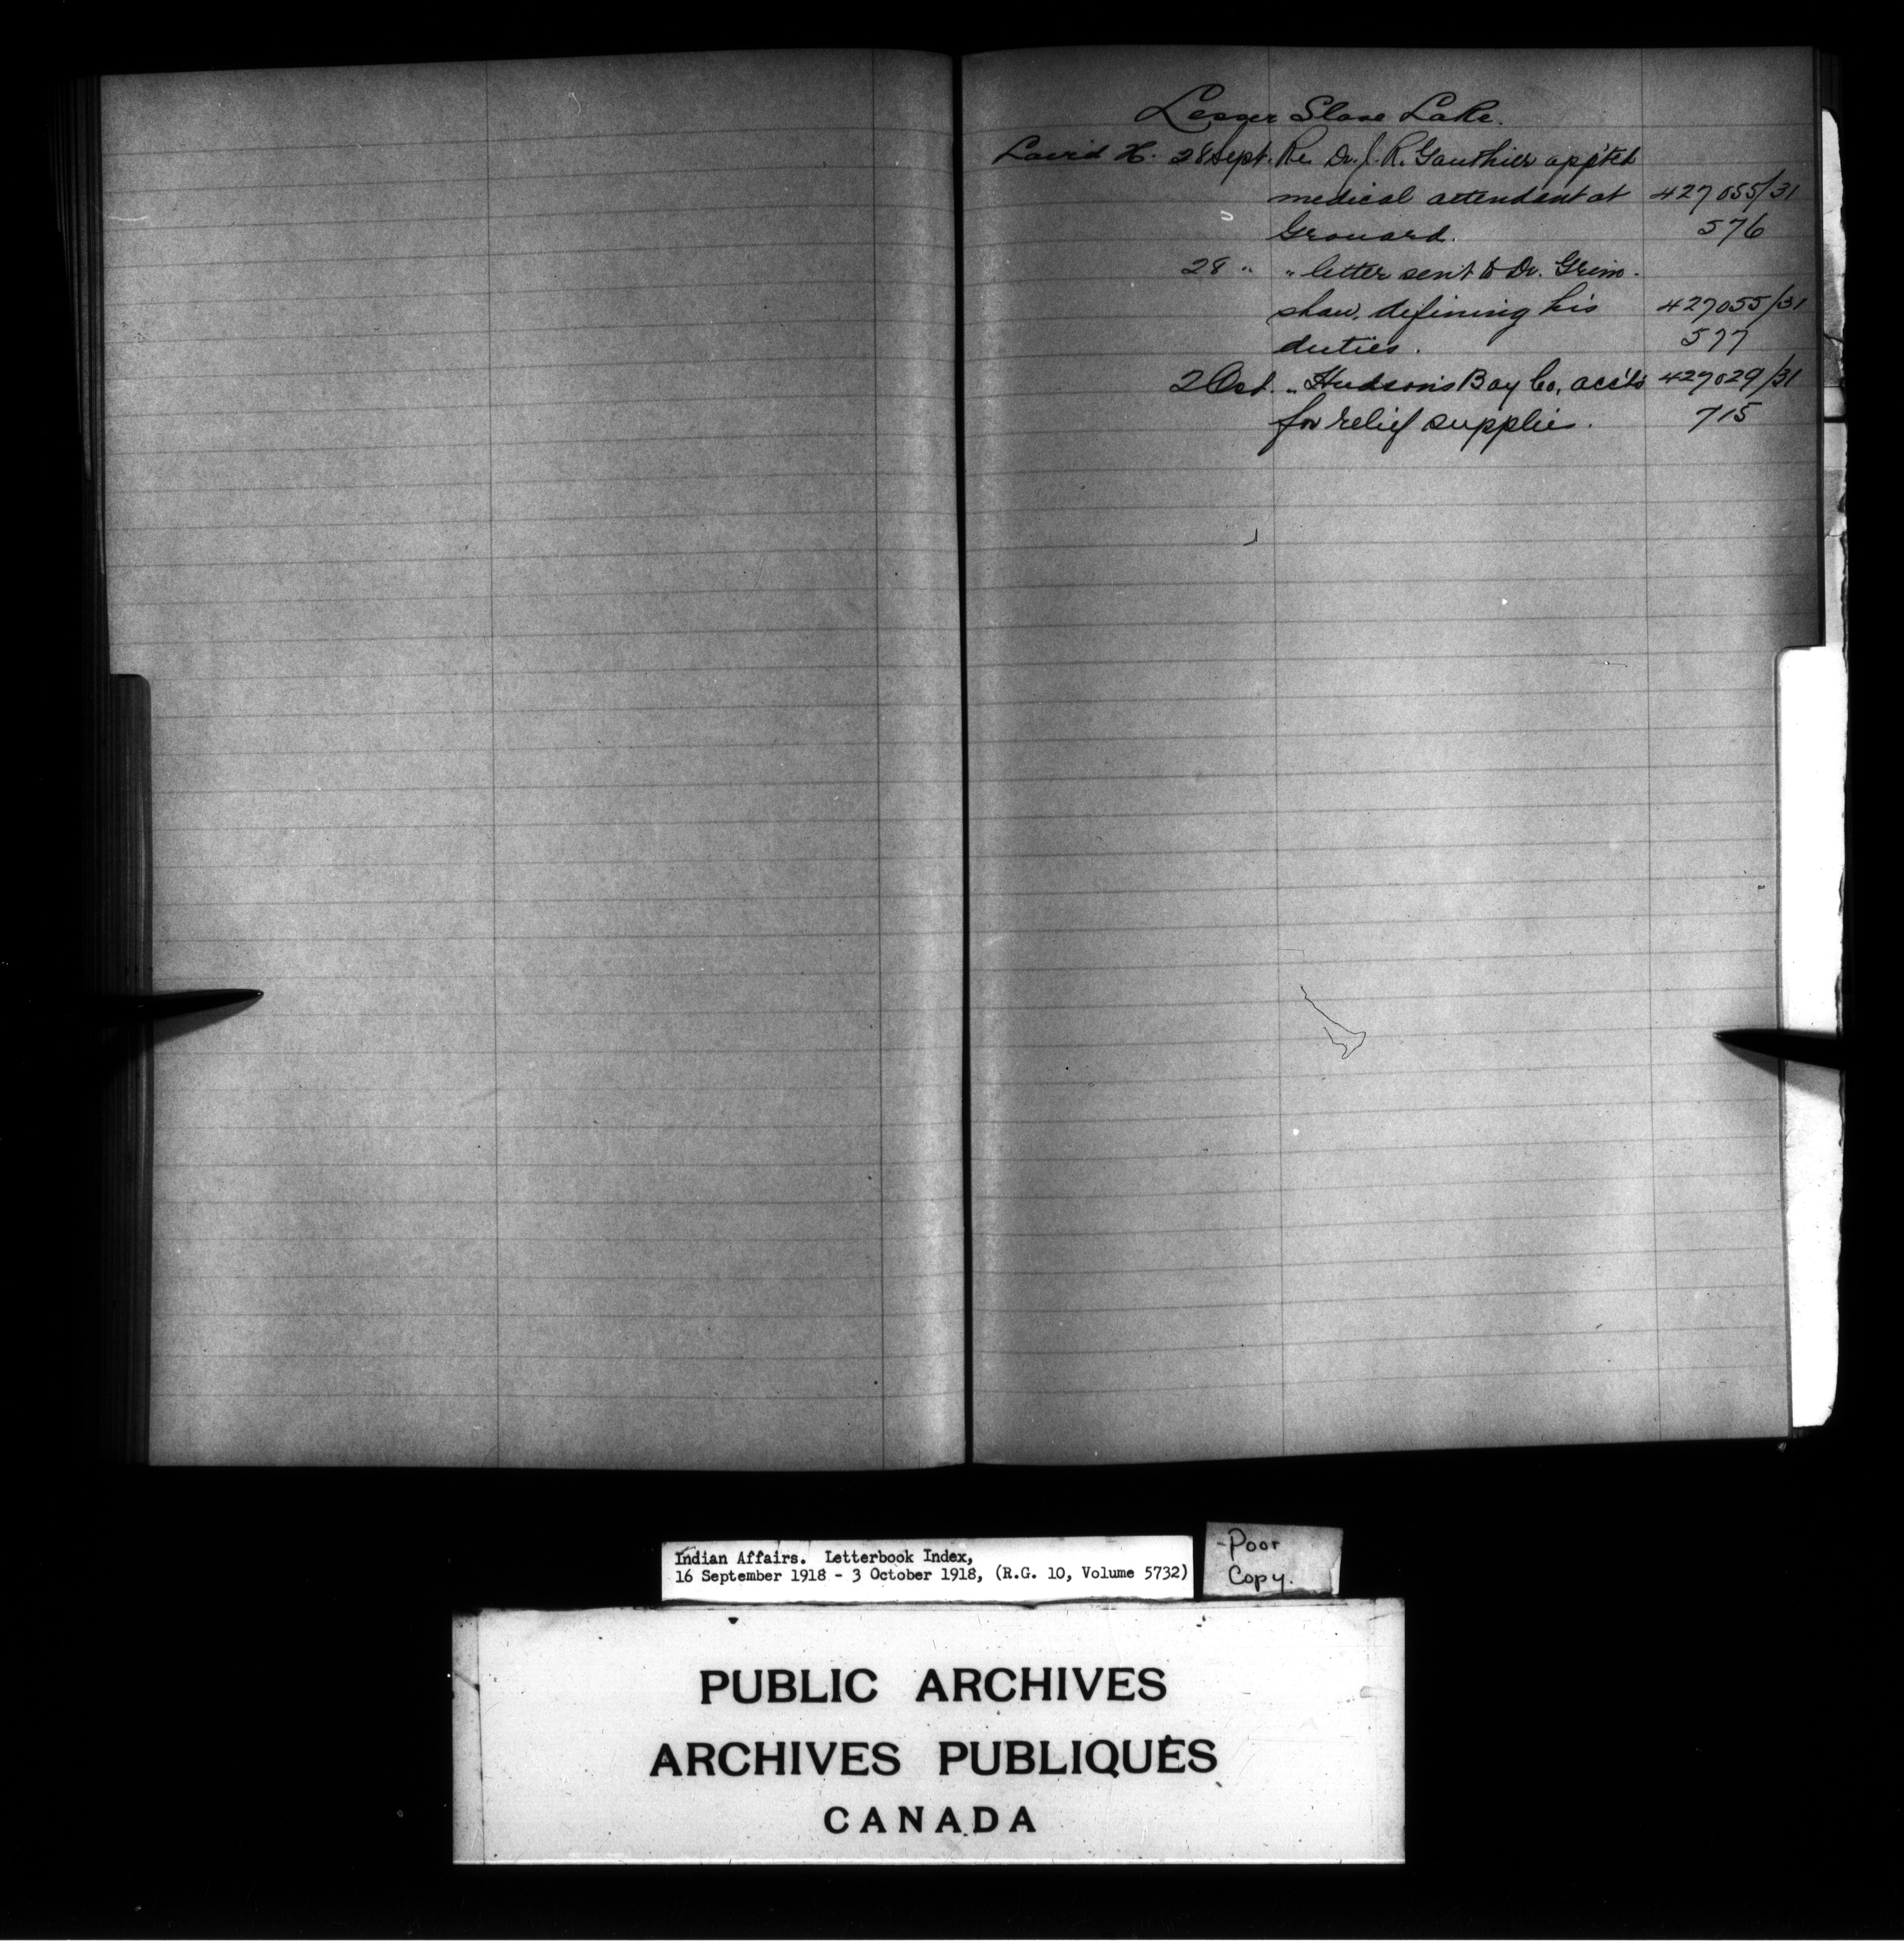 Lesser Slave Lake.
Laird H. 28 Sept. Re. Dr. J. R. Gauthier app'ted
medical attendant at 427055/31
Grouard. 576
28 " " letter sent to Dr. Grim-
shaw, defining his 427055/31
duties. 577
2 Oct. " Hudson's Bay Co, acc'ts 427029/31
for relief supplies. 715
Indian Affairs. Letterbook Index,
16 September 1918 - 3 October 1918, (R.G. 10, Volume 5732)
-Poor
Copy.
PUBLIC ARCHIVES
ARCHIVES PUBLIQUES
CANADA